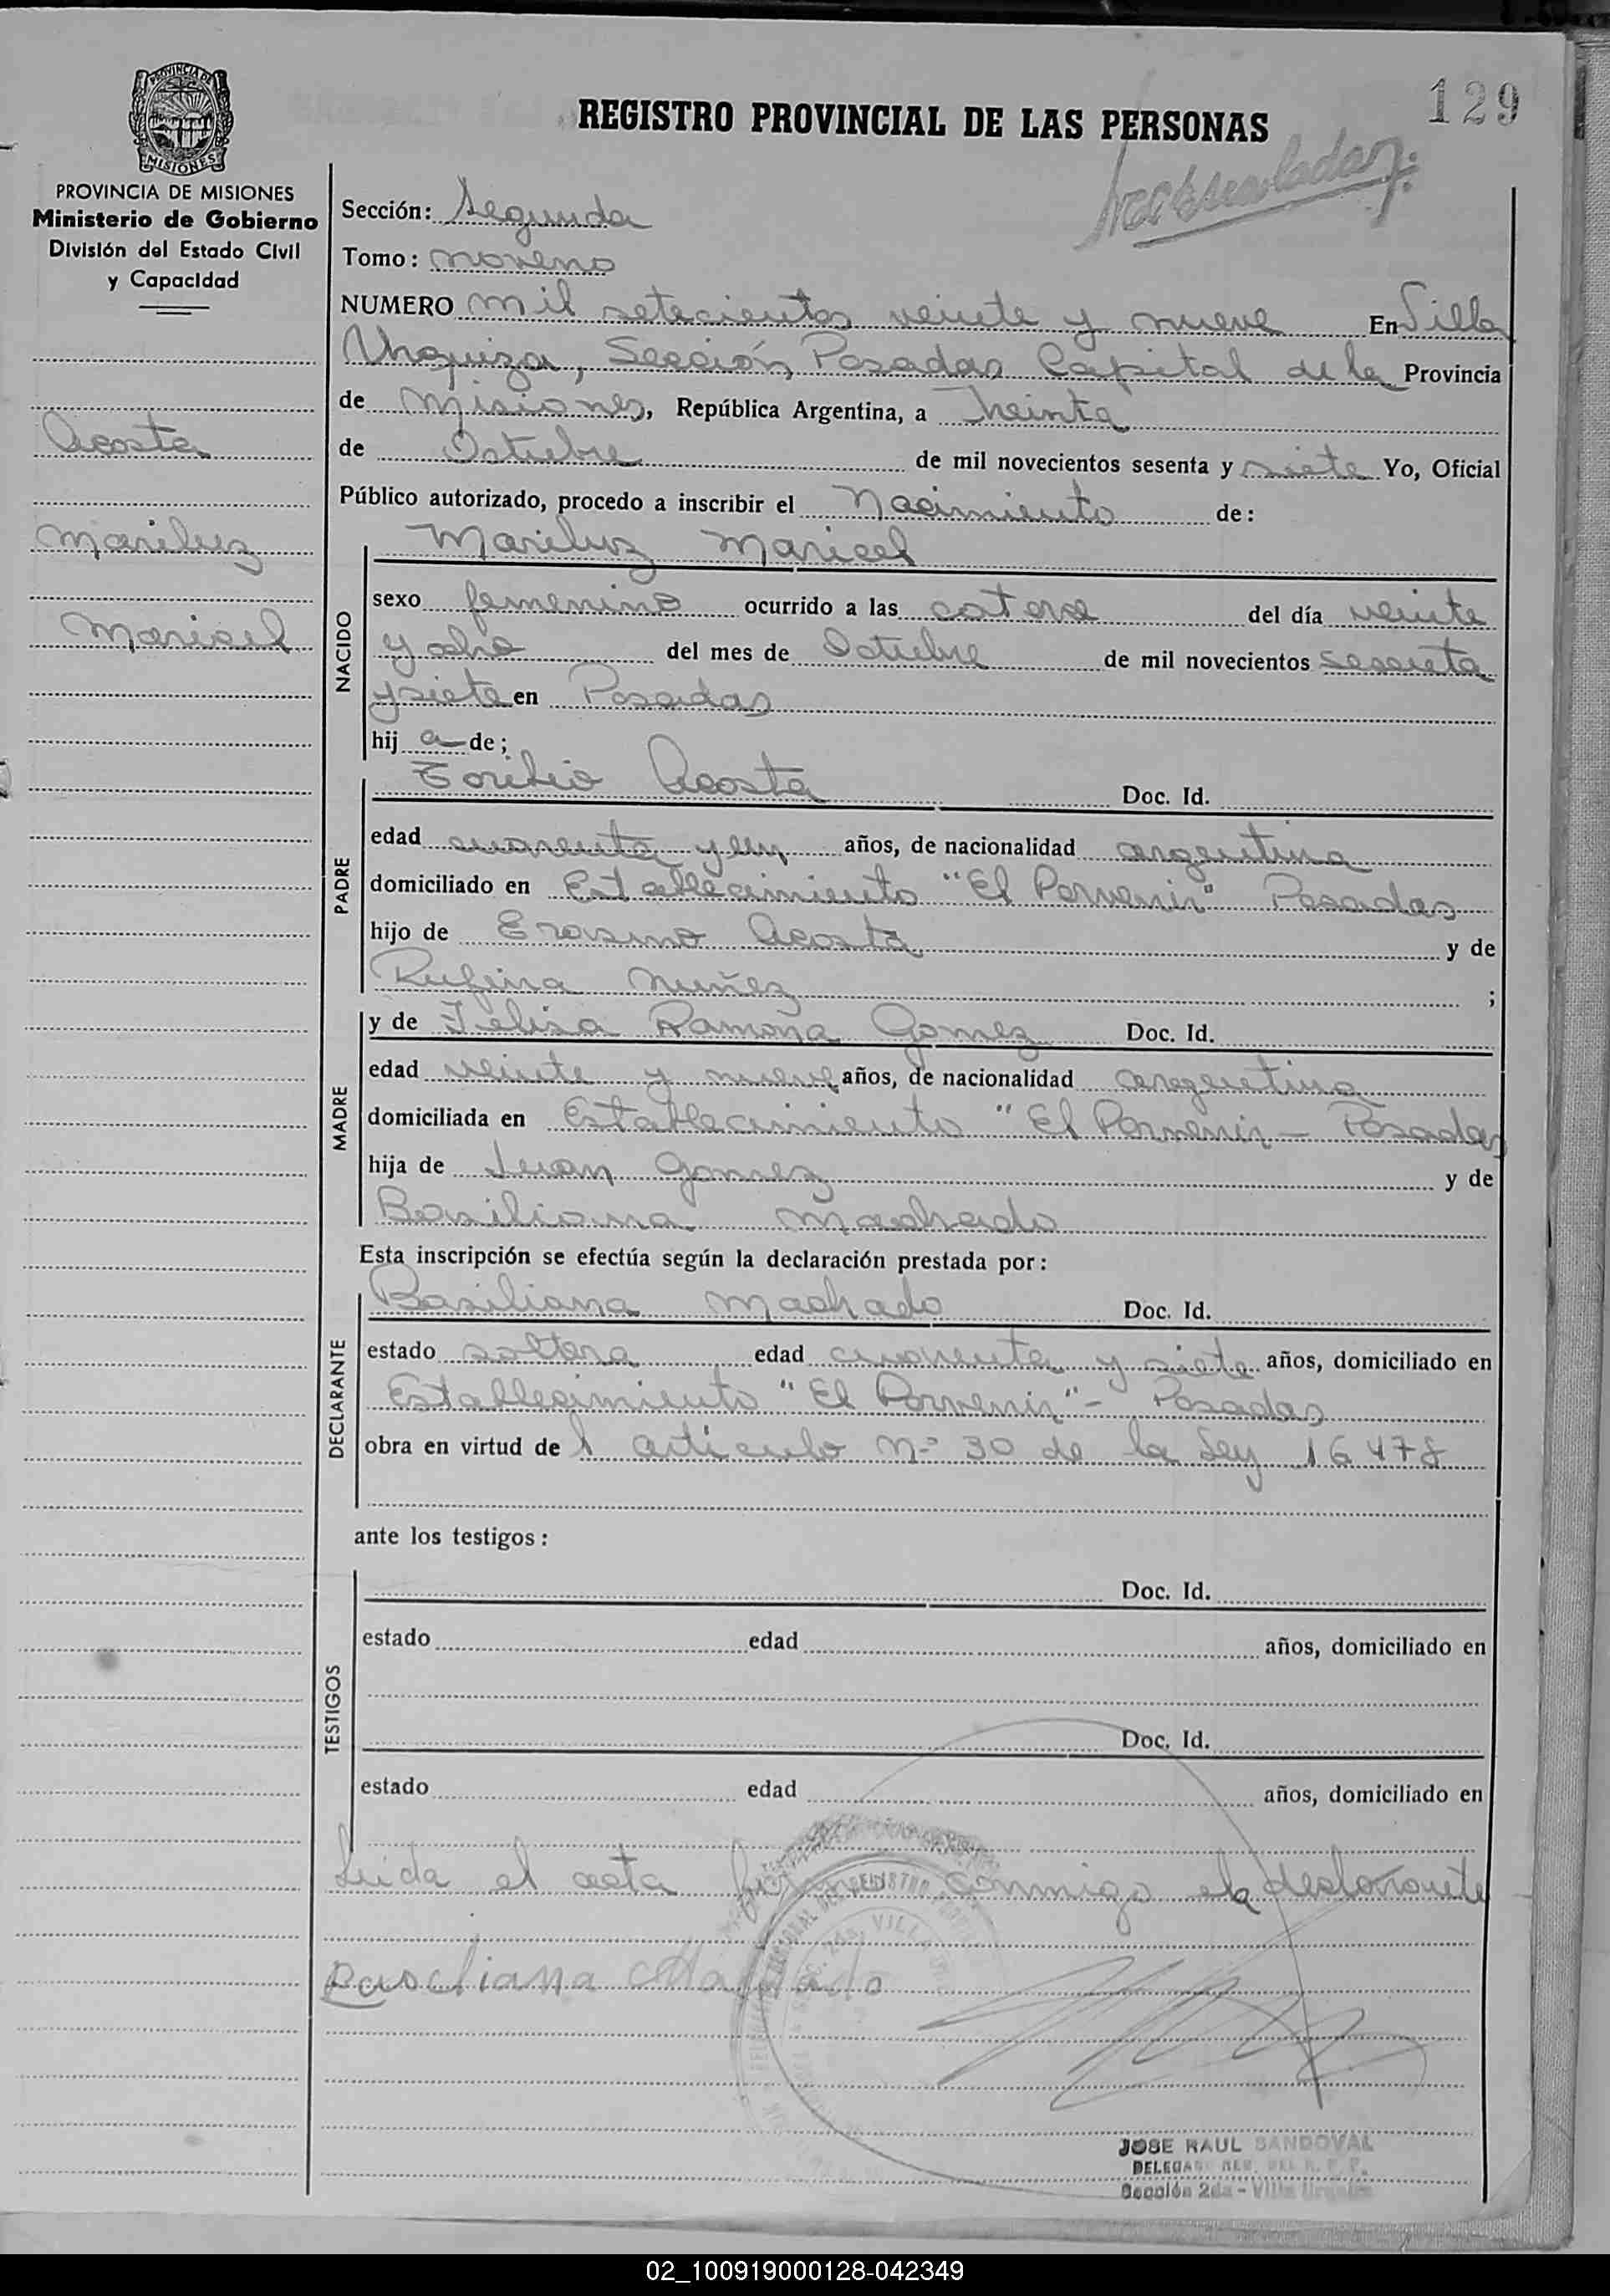 129
REGISTRO PROVINCIAL DE LAS PERSONAS
PROVINCIA DE MISIONES
Ministerio de Gobierno
División del Estado Civil
y Capacidad
Acosta
Mariluz
Maricel
Sección: Segunda
Tomo: noveno
NUMERO mil setecientos veinte y nueve En Villa
Urquiza, Sección Posadas Capital de la Provincia
de Misiones, República Argentina, a Treinta
de Octubre de mil novecientos sesenta y siete Yo, Oficial
Público autorizado, procedo a inscribir el Nacimiento de:
Mariluz Maricel
NACIDO
sexo femenino ocurrido a las catorce del día veinte
y ocho del mes de Octubre de mil novecientos sesenta
y siete en Posadas
hij a de;
Toribio Acosta Doc. Id.
PADRE
edad cuarenta y un años, de nacionalidad argentina
domiciliado en Establecimiento "El Porvenir" Posadas
hijo de Erasmo Acosta y de
Rufina Nuñez ;
y de Felisa Ramona Gomez Doc. Id.
MADRE
edad veinte y nueve años, de nacionalidad argentina
domiciliada en Establecimiento "El Porvenir - Posadas
hija de Juan Gomez y de
Basiliana Machado
Esta inscripción se efectúa según la declaración prestada por:
Basiliana Machado Doc. Id.
DECLARANTE
estado soltera edad cuarenta y siete años, domiciliado en
Establecimiento "El Porvenir" - Posadas
obra en virtud de l articulo Nº 30 de la Ley 16478
ante los testigos:
Doc. Id.
TESTIGOS
estado edad años, domiciliado en
Doc. Id.
estado edad años, domiciliado en
Leida el acta conmigo la declarante
Machado
JOSE RAUL SANDOVAL
Sección 2da - Villa Urquiza
02_100919000128-042349